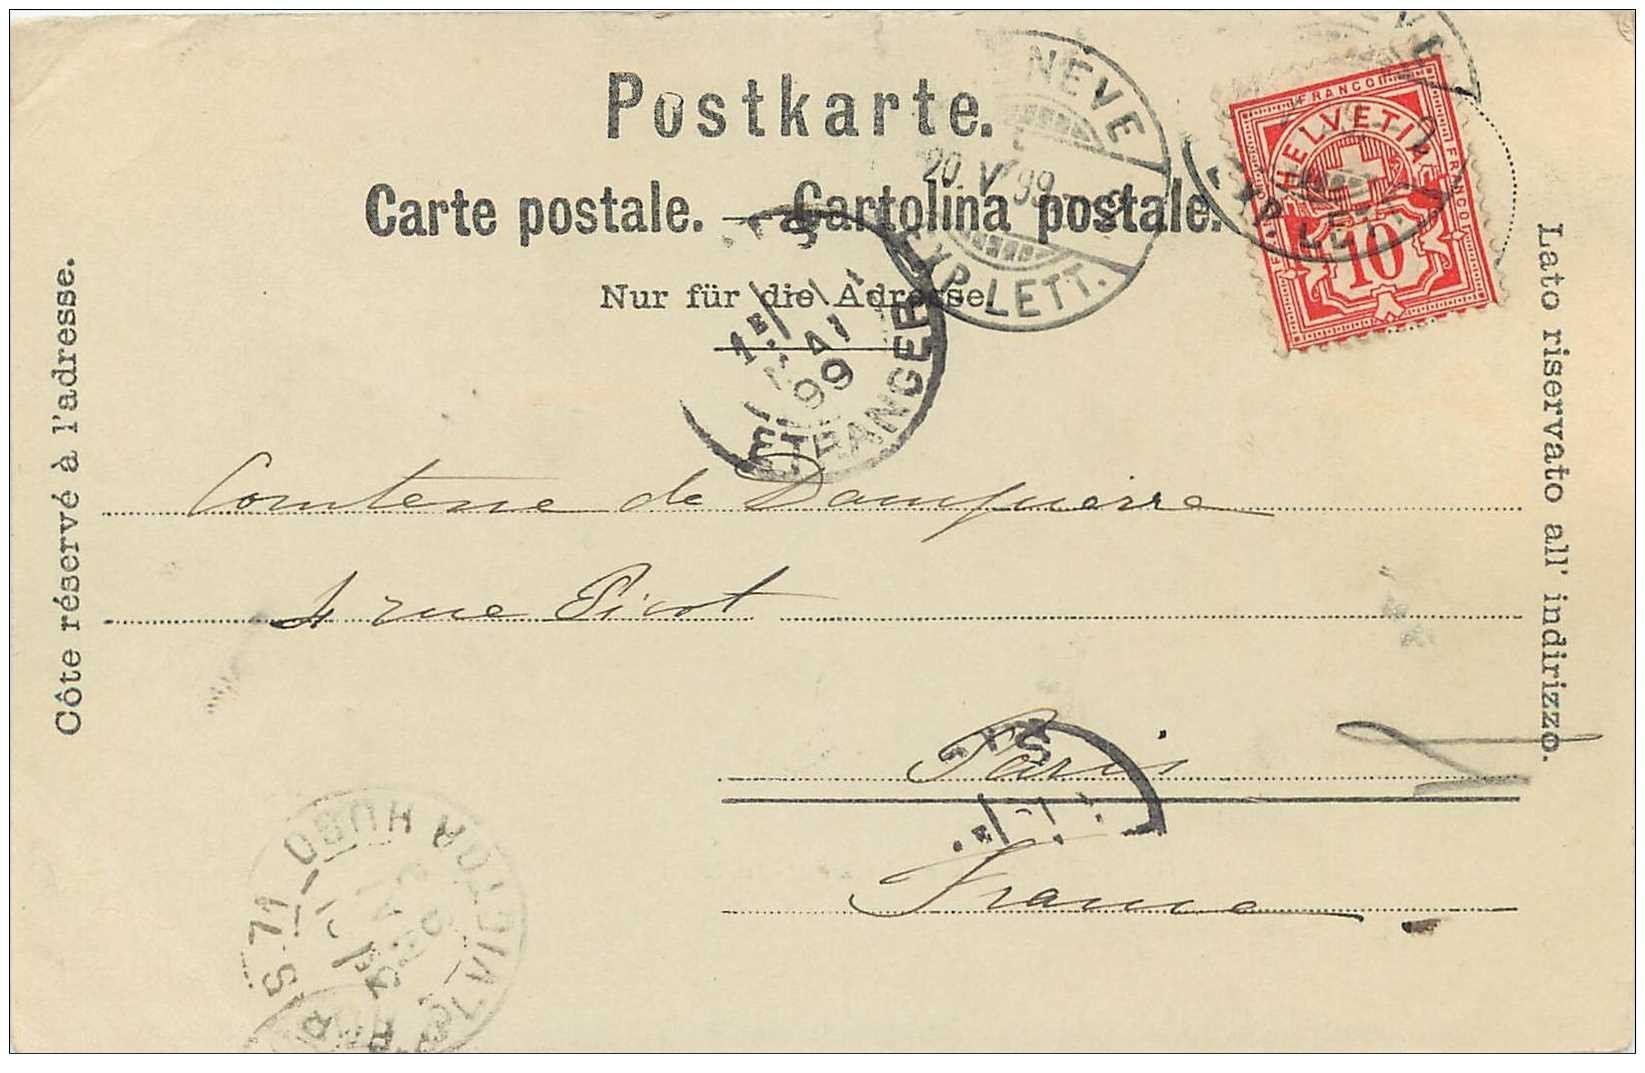 Postkarte.
Carte postale. Cartolina postale.
Nur für die Adresse.
Côte réservé à l'adresse.
Lato riservato all' indirizzo.
NEVE
20 V 99
EXP. LETT.
FRANCO
HELVETIA
FRANCO
10
EXP. LETT.
1E
99
ETRANGER
Comtesse de Dampierre
4 rue Picot
Paris
France
PARIS 71
VICTOR HUGO